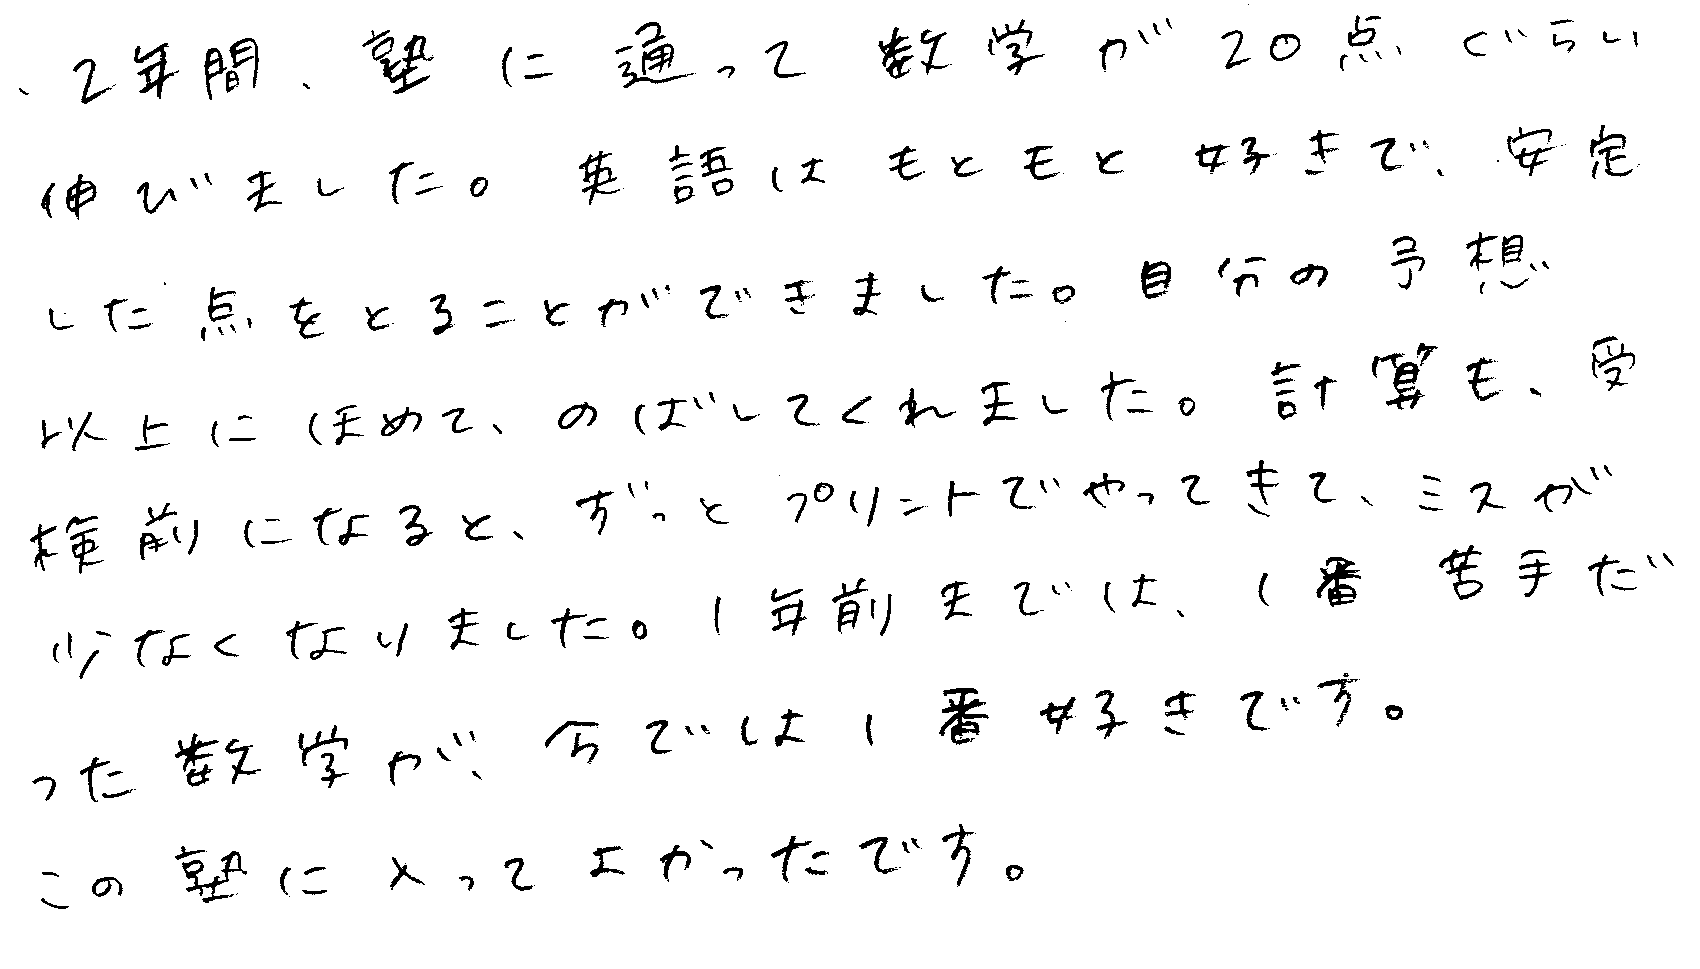 2年間、塾に通って数学が20点ぐらい
伸びました。英語はもともと好きで、安定
した点をとることができました。自分の予想
以上にほめて、のばしてくれました。計算も、受
検前になると、ずっとプリントでやってきて、ミスが
少なくなりました。1年前までは、1番苦手だ
った数学が、今では1番好きです。
この塾に入ってよかったです。